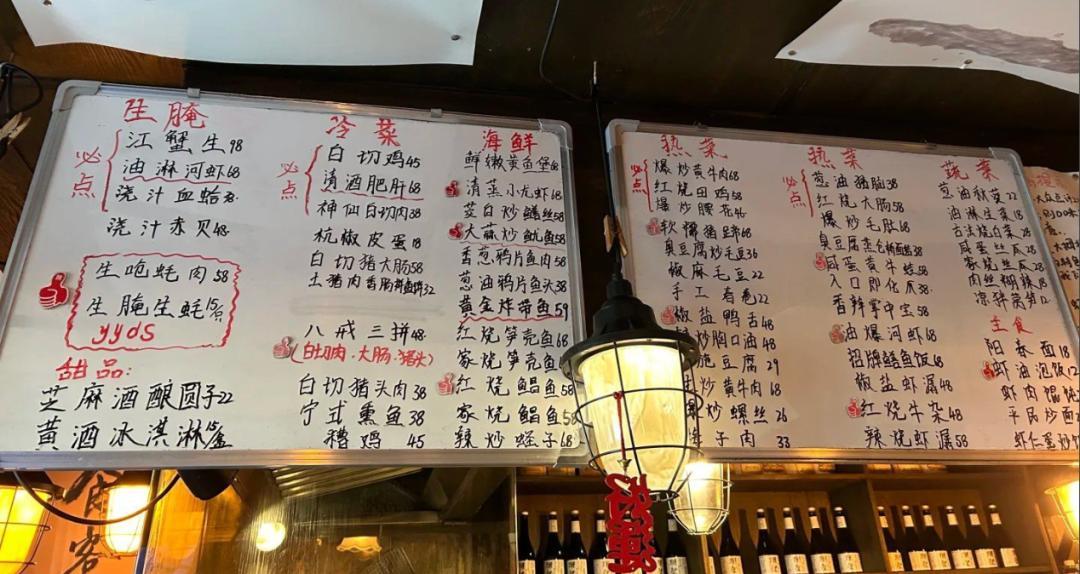 生腌
必点
江蟹生98
油淋河虾68
浇汁血蛤
浇汁赤贝48
生吃蚝肉58
生腌生蚝15
yyds
甜品:
芝麻酒酿圆子22
黄酒冰淇淋
冷菜
必点
白切鸡45
清酒肥肝68
神仙白切肉38
杭椒皮蛋18
白切猪大肠58
土猪肉香肠
八戒三拼48
(白切肉·大肠·猪头)
白切猪头肉38
宁式熏鱼38
糟鸡45
海鲜
鲜嫩黄鱼堡68
清蒸小龙虾68
茭白炒鳝丝58
大蒜炒鱿鱼58
香葱鸦片鱼肉58
葱油鸦片鱼头38
黄金炸带鱼59
红烧笋壳鱼68
家烧笋壳鱼68
红烧鲳鱼58
家烧鲳鱼58
辣炒蛏子68
热菜
必点
爆炒黄牛肉68
红烧田鸡58
爆炒腰花46
软糯猪蹄68
臭豆腐炒毛豆36
椒麻毛豆22
手工春卷22
椒盐鸭舌48
炒胸口油48
豆腐29
炒黄牛肉68
炒螺丝26
子肉33
热菜
必点
葱油猪胸38
红烧大肠58
爆炒毛肚68
臭豆腐蒸
咸蛋黄牛蛙58
入口即化瓜38
香辣掌中宝58
油爆河虾68
招牌鳝鱼饭68
椒盐虾潺48
红烧牛杂48
辣烧虾潺58
蔬菜
葱油秋葵22
油淋生菜18
古法烧白菜28
咸蛋丝瓜28
家烧丝瓜28
肉丝榨辣18
凉拌莴笋12
主食
阳春面18
虾油泡饭12
虾肉馄饨
平民炒面
虾仁蛋炒饭